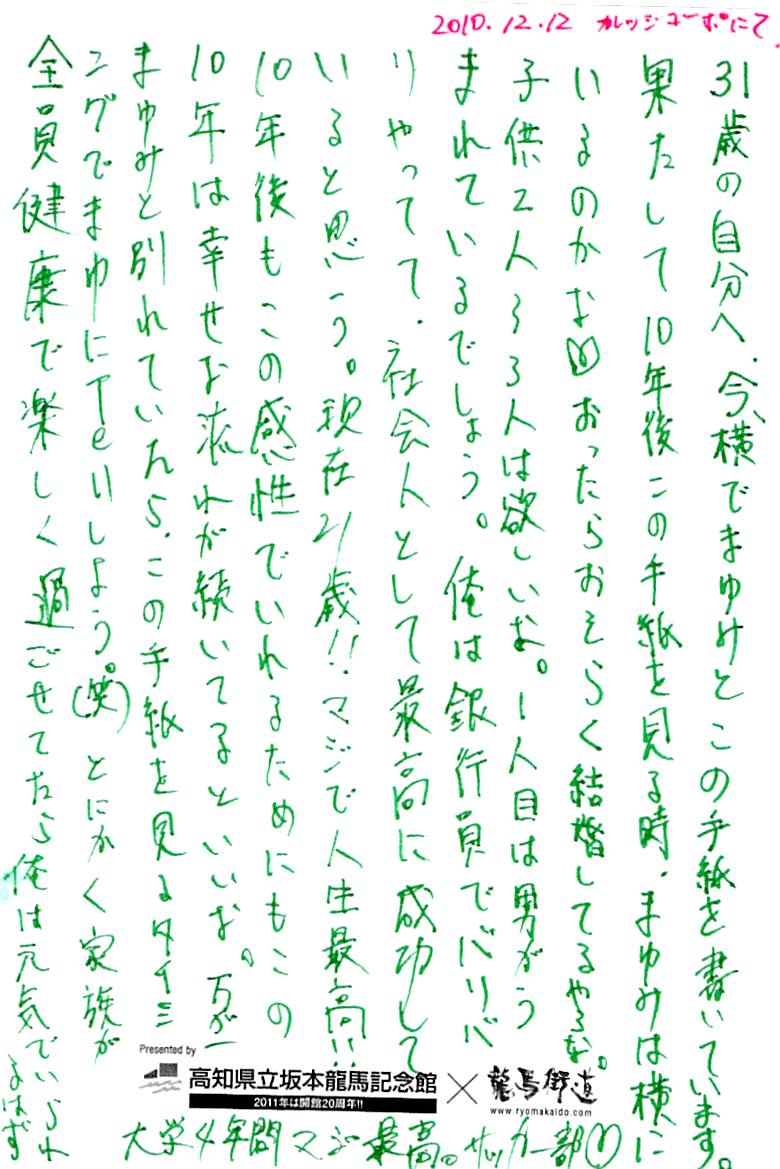 2010.12.12 カレッジコーポにて
31歳の自分へ、今、横でまゆみとこの手紙を書いています。
果たして10年後この手紙を見る時、まゆみは横に
いるのかな おったらおそらく結婚してるやろな。
子供2人、3人は欲しいな。1人目は男がう
まれているでしょう。俺は銀行員でバリバ
リやってて、社会人として最高に成功して
いると思こう。現在21歳!!マジで人生最高!!
10年後もこの感性でいれるためにもこの
10年は幸せな流れが続いてるといいな。万が一
まゆみと別れていたら、この手紙を見るタイミ
ングでまゆにTelしよう。(笑)とにかく家族が
全員健康で楽しく過ごせてたら俺は元気でいられ
るはず
大学4年間マジ最高。サッカー部
Presented by
高知県立坂本龍馬記念館 × 龍馬街道
2011年は開館20周年!!
www.ryomakaido.com